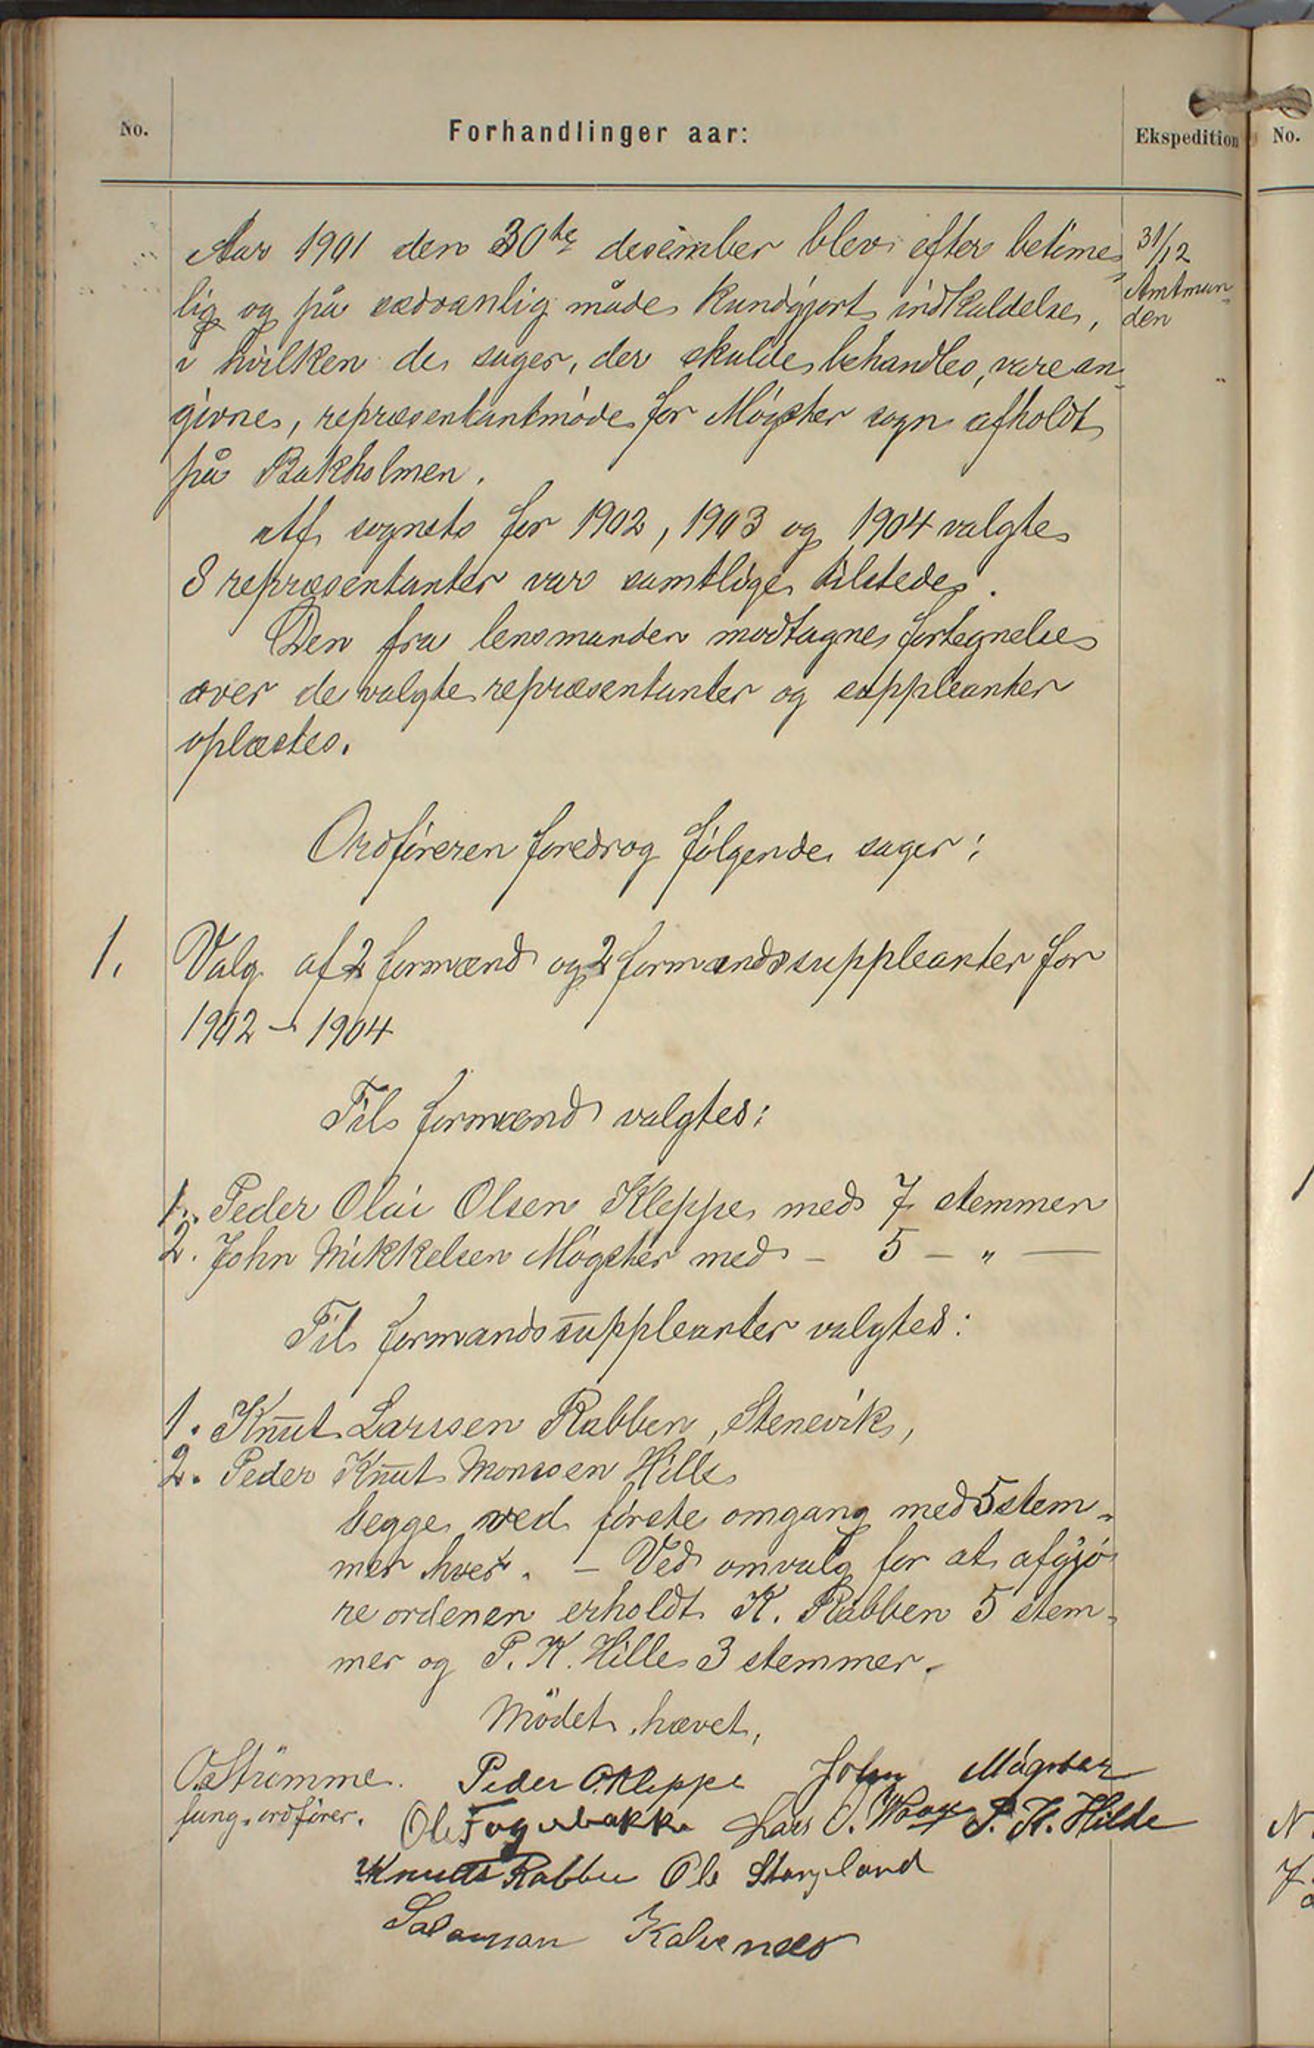 No.
Forhandlinger aar:
Ekspedition
No.
Aar 1901 den 30te desember blev efter betime-
lig og på sædvanlig måde kundgjort indkaldelse,
i hvilken de sager, der skulde behandles, vare an-
givne, repræsentantmøde for Møgster sogn afholdt
på Bakholmen.
31/12
Amtman-
den
Af sognets for 1902, 1903 og 1904 valgte
8 repræsentanter var samtlige tilstede.
Den fra lensmanden modtagne fortegnelse
over de valgte repræsentanter og suppleanter
oplæstes.
Ordføreren foredrog følgende sager:
1. Valg af 2 formænd og 2 formandssuppleanter for
1902 - 1904
Til formænd valgtes:
1. Peder Olai Olsen Kleppe med 7 stemmer
2. John Mikkelsen Møgster med - 5 - " -
Til formandssuppleanter valgtes:
1. Knut Larssen Rabben, Stenevik,
2. Peder Knut Monssen Hille
begge ved første omgang med 5 stem-
mer hver. - Ved omvalg for at afgjø-
re ordenen erholdt K. Rabben 5 stem-
mer og P. K. Hille 3 stemmer.
Mödet hævet,
O. Strömme. Peder O. Kleppe John Møgster
fung. ordfører. Ole Fagerbakke Lars O. P. K. Hilde
Knut Rabben Ole Storpland
Salamon Kalvenæs